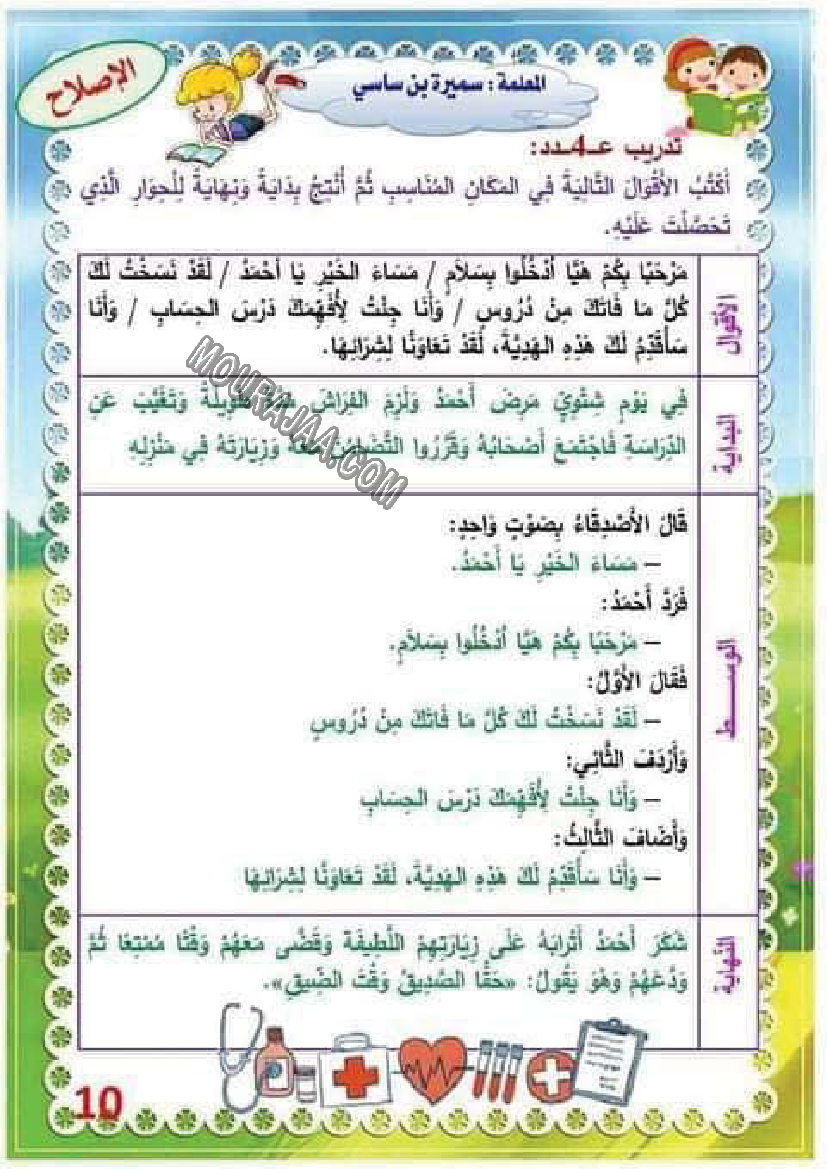 الإصلاح
المعلمة : سميرة بن ساسي
تدريب عـ4ـدد:
أَكْتُبُ الأَقْوَالَ التَّالِيَةَ فِي المَكَانِ المُنَاسِبِ ثُمَّ أُنْتِجُ بِدَايَةً وَنِهَايَةً لِلْحِوَارِ الَّذِي
تَحَصَّلْتَ عَلَيْهِ.
الأقوال
مَرْحَبًا بِكُمْ هَيَّا اُدْخُلُوا بِسَلاَمٍ / مَسَاءَ الخَيْرِ يَا أَحْمَدُ / لَقَدْ نَسَخْتُ لَكَ
كُلَّ مَا فَاتَكَ مِنْ دُرُوسٍ / وَأَنَا جِئْتُ لِأُفَهِّمَكَ دَرْسَ الحِسَابِ / وَأَنَا
سَأُقَدِّمُ لَكَ هَذِهِ الهَدِيَّةَ، لَقَدْ تَعَاوَنَّا لِشِرَائِهَا.
البداية
فِي يَوْمٍ شِتْوِيٍّ مَرِضَ أَحْمَدُ وَلَزِمَ الفِرَاشَ مُدَّةً طَوِيلَةً وَتَغَيَّبَ عَنِ
الدِّرَاسَةِ فَاجْتَمَعَ أَصْحَابُهُ وَقَرَّرُوا التَّضَامُنَ مَعَهُ وَزِيَارَتَهُ فِي مَنْزِلِهِ
الوســط
قَالَ الأَصْدِقَاءُ بِصَوْتٍ وَاحِدٍ:
– مَسَاءَ الخَيْرِ يَا أَحْمَدُ.
فَرَدَّ أَحْمَدُ:
– مَرْحَبًا بِكُمْ هَيَّا اُدْخُلُوا بِسَلاَمٍ.
فَقَالَ الأَوَّلُ:
– لَقَدْ نَسَخْتُ لَكَ كُلَّ مَا فَاتَكَ مِنْ دُرُوسٍ
وَأَرْدَفَ الثَّانِي:
– وَأَنَا جِئْتُ لِأُفَهِّمَكَ دَرْسَ الحِسَابِ
وَأَضَافَ الثَّالِثُ:
– وَأَنَا سَأُقَدِّمُ لَكَ هَذِهِ الهَدِيَّةَ، لَقَدْ تَعَاوَنَّا لِشِرَائِهَا
النهاية
شَكَرَ أَحْمَدُ أَتْرَابَهُ عَلَى زِيَارَتِهِمْ اللَّطِيفَة وَقَضَّى مَعَهُمْ وَقْتًا مُمْتِعًا ثُمَّ
وَدَّعَهُمْ وَهُوَ يَقُولُ: «حَقًّا الصَّدِيقُ وَقْتَ الضِّيقِ».
MOURAJAA.COM
10